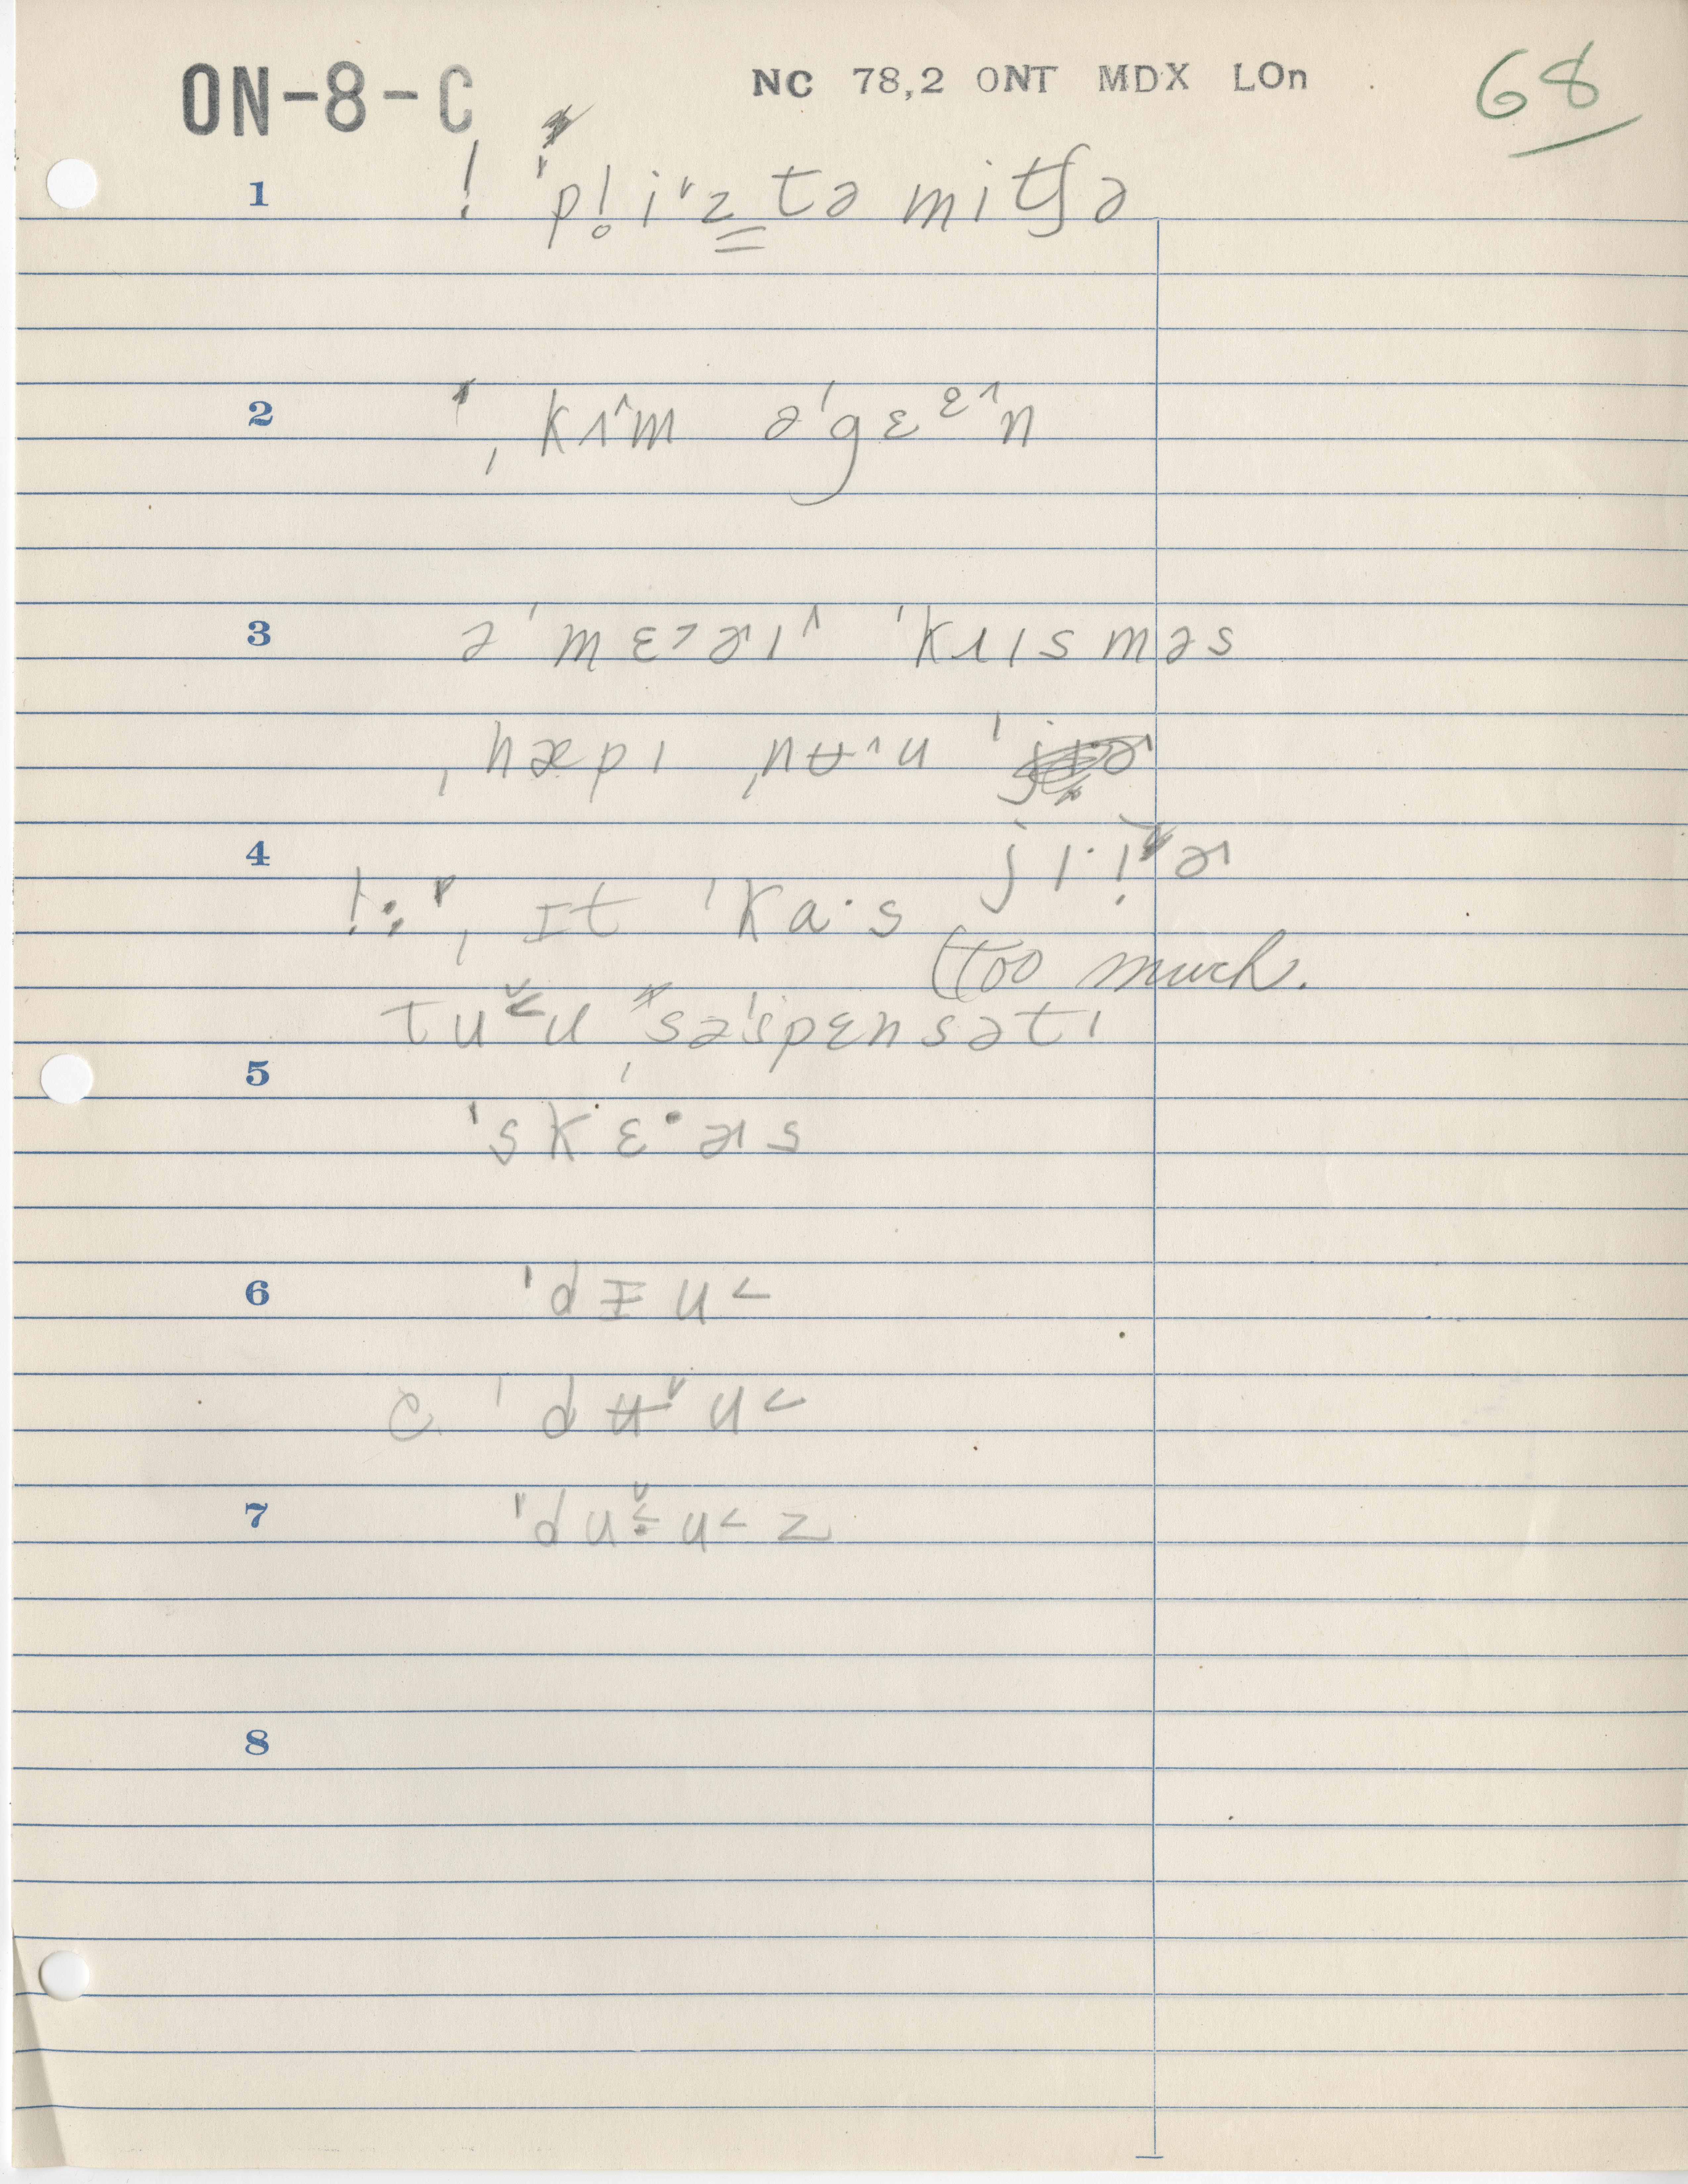 ON-8-C NC 78,2 ONT MDX LOn 68
1 ! ˈpl̥iˇz̳ tə mitʃə
2 ˌkɪ^m əˈgɛᵋ^n
3 əˈmɛ>ɚɪ^ ˈkɹɪsməs
ˌhæpɪ ˌnʉ^u ˈ
4 jɪ·iˇɚ
ˌIt ˈka·s
(too much.
tuˇu səˈspɛnsətɪ
5
ˈskɛ·ɚs
6 ˈdɪu<
c. ˈdʉˇu<
7 ˈduˇu<z
8